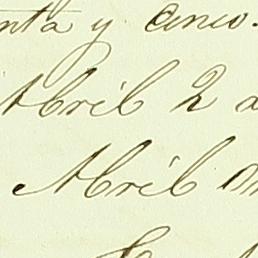 nta y cinco.
Abril 2 a
Abril